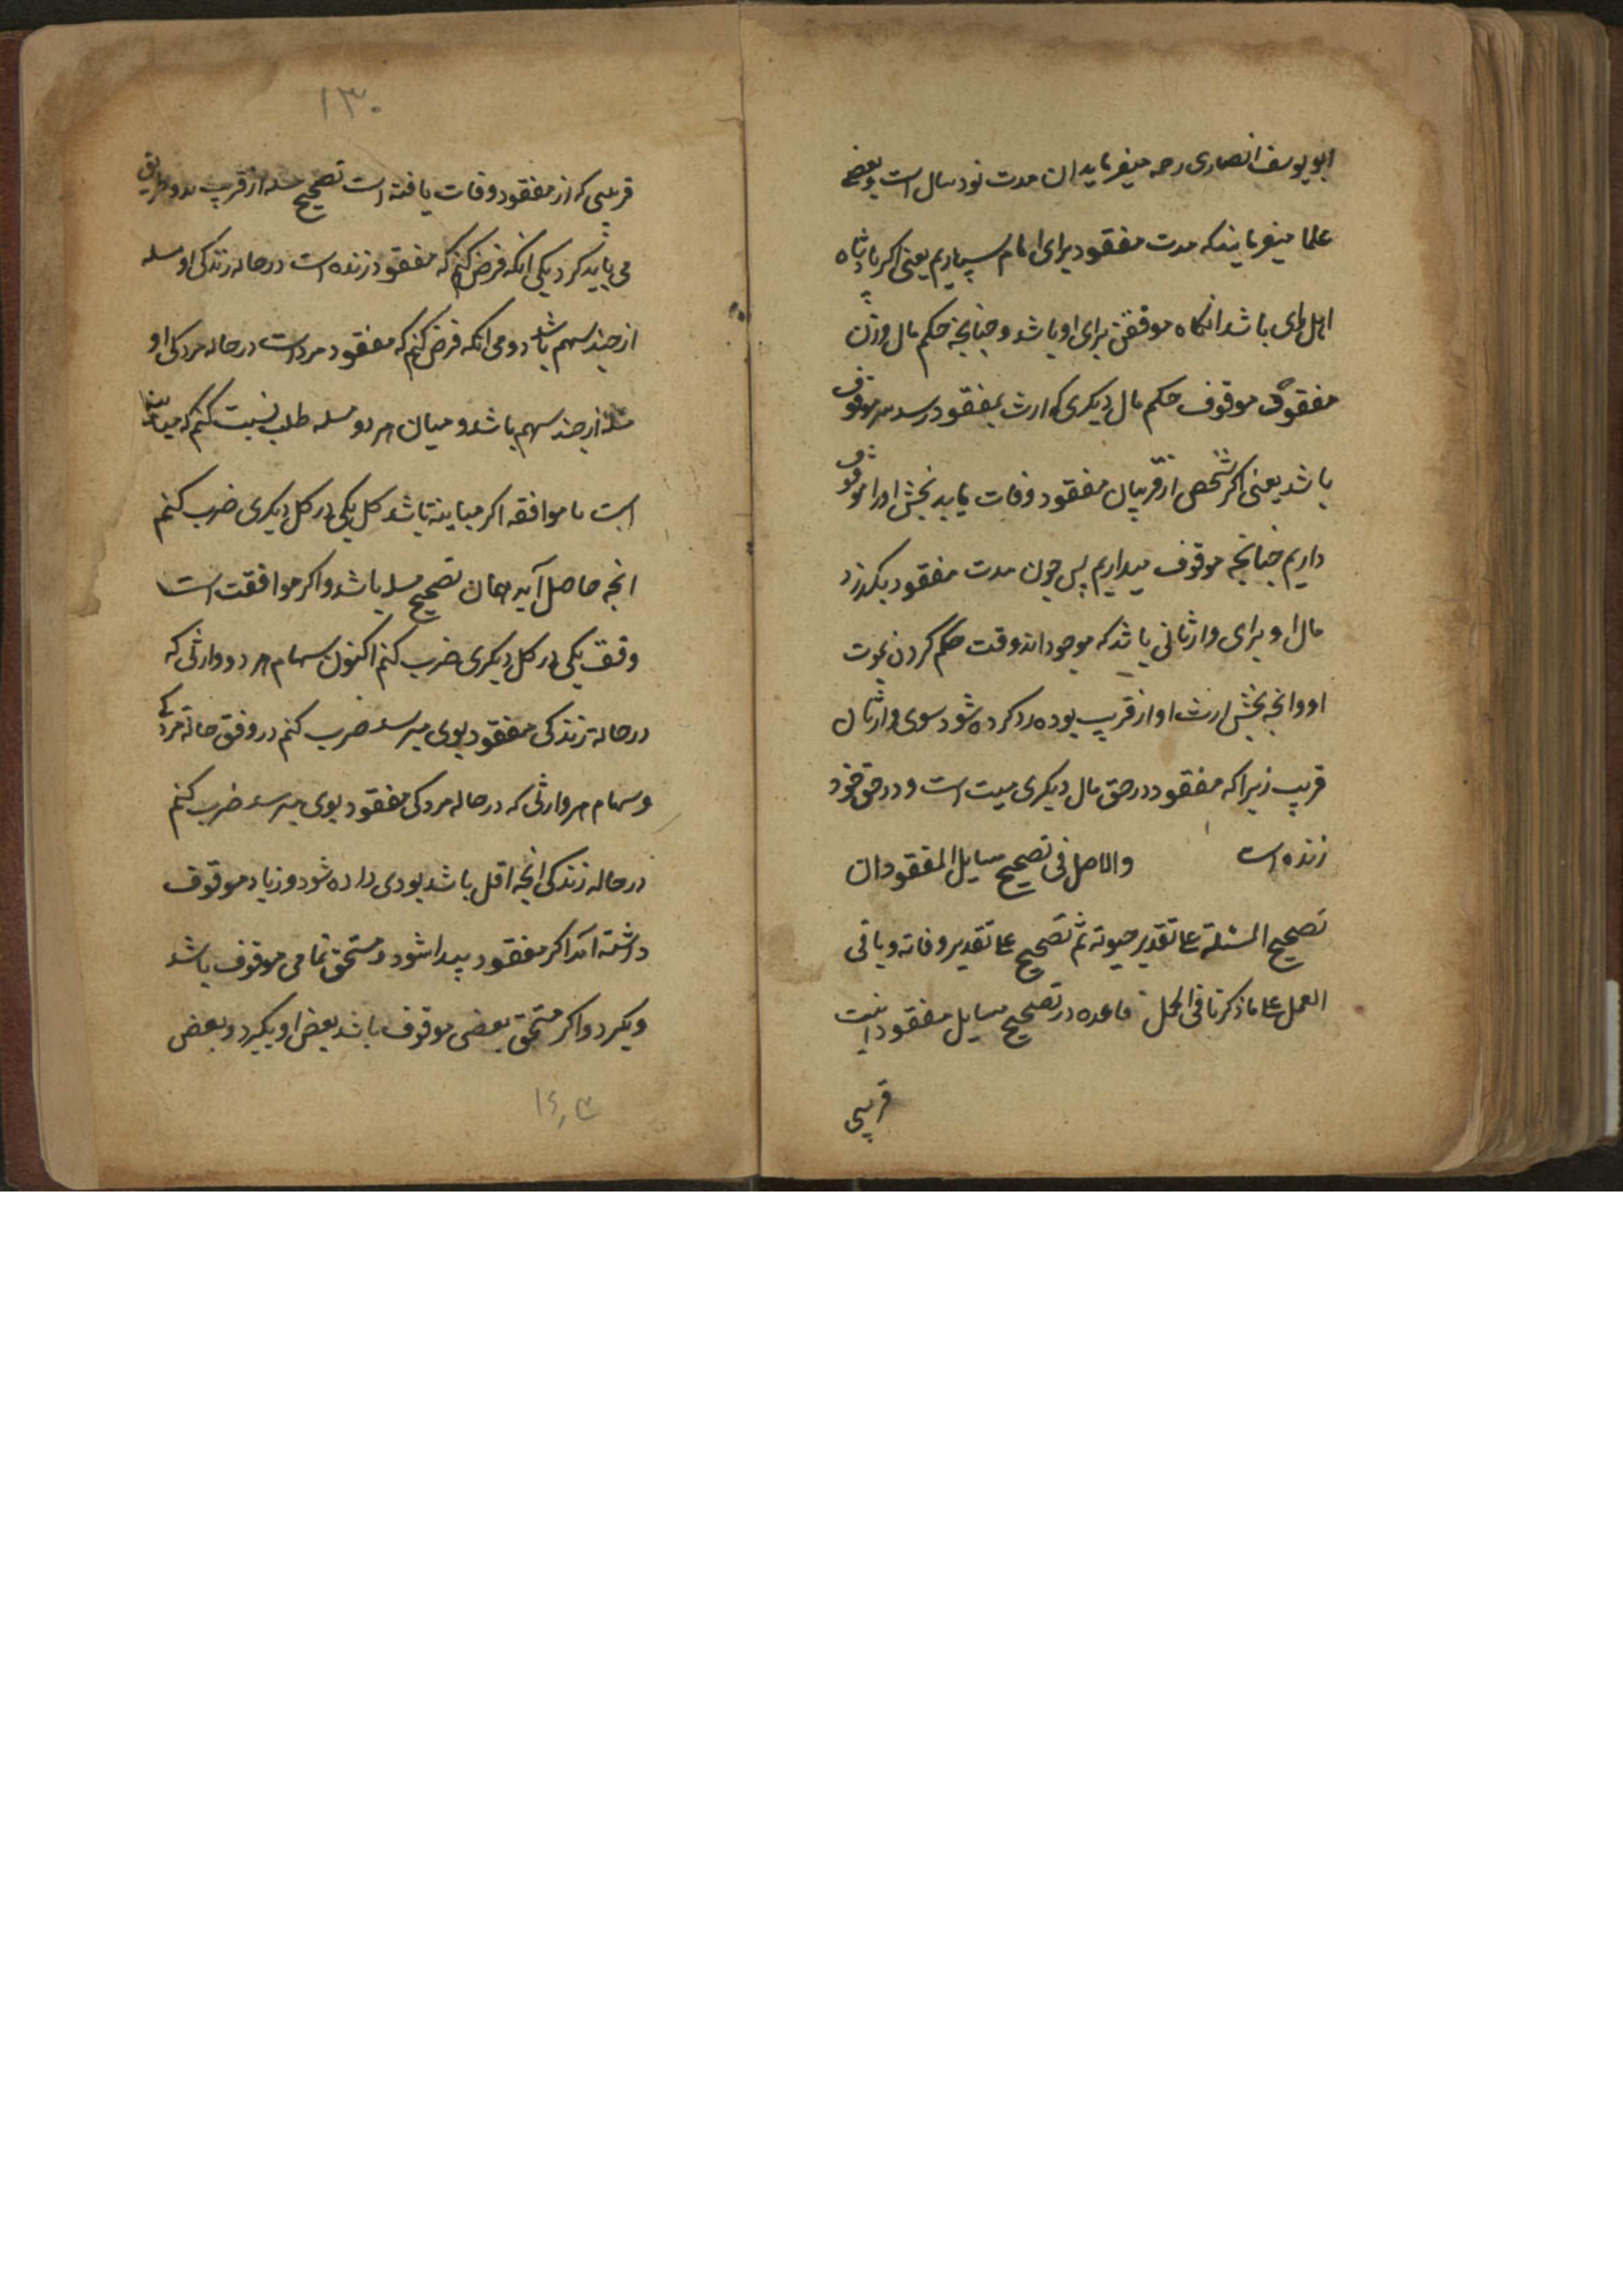 ابو یوسف انصاری رحمه میفرماید ان مدت نود سال است و بعضی
علما میفرمایند که مدت مفقود برای امام سپاریم یعنی اکر پادشاه
اهل رای باشد انکاه موقفش برای او باشد و چنانچه حکم مال وزن
مفقود موقوف حکم مال دیکری که ارث بمفقود رسد هم موقوف
باشد یعنی اکر شخصی از قریبان مفقود وفات یابد بخش او را موقوف
داریم چنانچه موقوف میداریم پس چون مدت مفقود بکذرد
مال او برای وارثانی باشد که موجود اند وقت حکم کردن بموت
او وانچه بخش ارث او از قریب بوده رد کرده شود سوی وارثان
قریب زیرا که مفقود در حق مال دیکری میت است و در حق خود
زنده است والاصل فی تصحیح مسایل المفقود ان
تصحیح المسئلة علی تقدیر حیوته ثم تصحیح علی تقدیر وفاته و باقی
العمل علی ما ذکرنا فی الحمل قاعده در تصحیح مسایل مفقود اینست
قریبی
۱۳۰
قریبی که از مفقود وفات یافته است تصحیح مسله از قریب بدو طریق
می باید کرد یکی انکه فرض کنم که مفقود زنده است در حاله زندکی او مسله
از چند سهم باشد دومی انکه فرض کنم که مفقود مرده است در حاله مردکی او
مسله از چند سهم باشد و میان هر دو مسله طلب نسبت کنم که مباینه
است یا موافقه اکر مباینه باشد کل یکی در کل دیکری ضرب کنم
انچه حاصل آید همان تصحیح مسله باشد و اکر موافقت است
وفق یکی در کل دیکری ضرب کنم اکنون سهام هر دو وارثی که
در حاله زندکی مفقود بوی میرسد ضرب کنم در وفق حاله مردکی
و سهام هر وارثی که در حاله مردکی مفقود بوی میرسد ضرب کنم
در حاله زندکی انچه اقل باشد بودی داده شود و زیاد موقوف
داشته اید اکر مفقود پیدا شود و مستحق تمامی موقوف باشد
وبکیرد و اکر مستحق بعضی موقوف باشد بعض او بکیرد و بعض